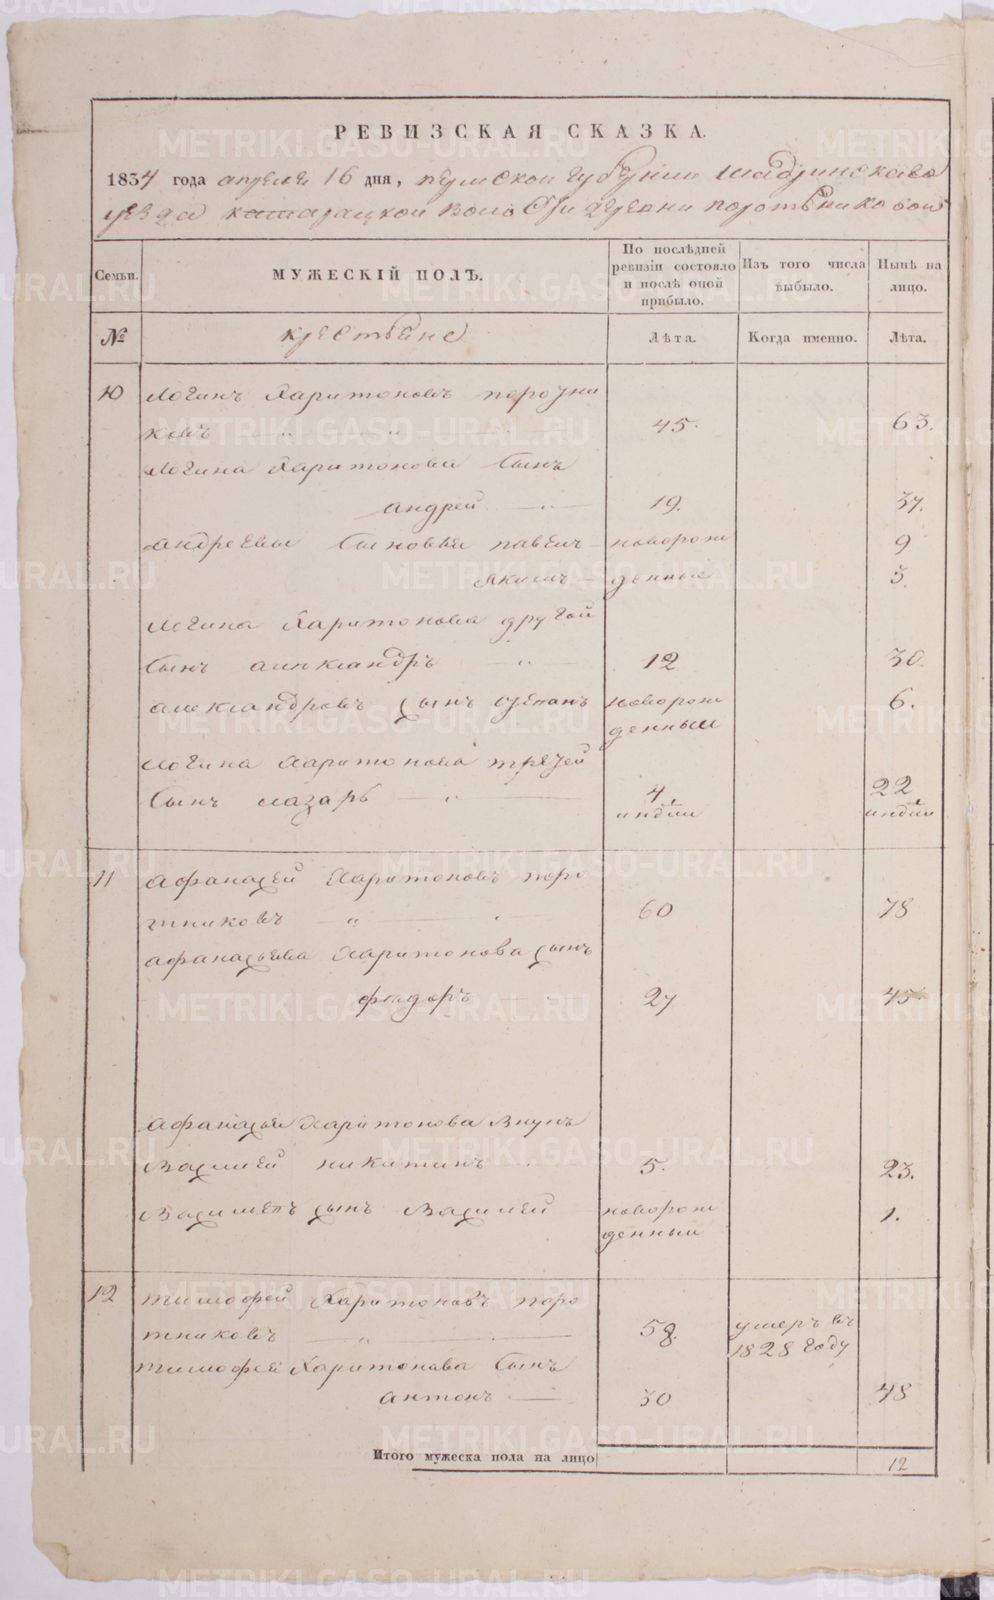 РЕВИЗСКАЯ СКАЗКА.
1834 года апреля 16 дня, пермской губернии шадринскаго
уезда катарацкой волости деревни поротниковой
Семьи.
МУЖЕСКІЙ ПОЛЪ.
По послѣдней ревизіи состояло и послѣ оной прибыло.
Изъ того числа выбыло.
Нынѣ на лицо.
№
крестьяне
Лѣта.
Когда именно.
Лѣта.
10 логинъ Харитоновъ поротни
ковъ 45. 63.
логина Харитонова сынъ
андрей 19. 37.
андреевы сыновья павелъ новорож 9
якимъ денные 5.
логина Харитонова другой
сынъ александръ 12 30.
александровъ сынъ степанъ новорож 6.
денный
логина харитонова третей
сынъ лазарь 4 22
11 афанасей Харитоновъ поро
тниковъ 60 78
афанасьева Харитонова сынъ
федоръ 27 45
афанасья Харитонова внукъ
василей никитинъ 5. 23.
васильевъ сынъ василей новорож 1.
денный
12 тимофей Харитоновъ поро
тниковъ 58. умеръ въ
1828 году
тимофея Харитонова сынъ
антонъ 30 48
Итого мужеска пола на лицо 12
METRIKI.GASO-URAL.RU